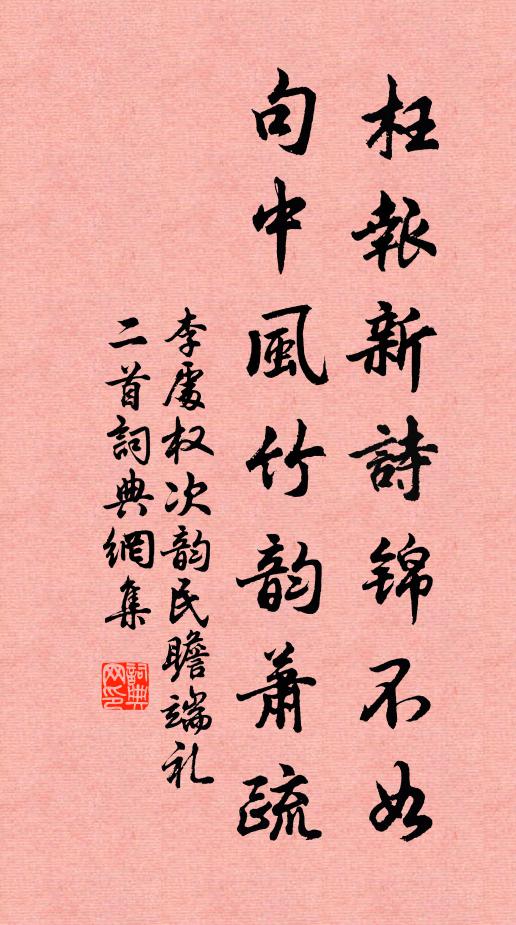 枉報新詩錦不如
句中風竹韵蕭疏
李處权次韵民瞻端礼
二首詞典網集
詞典
网印